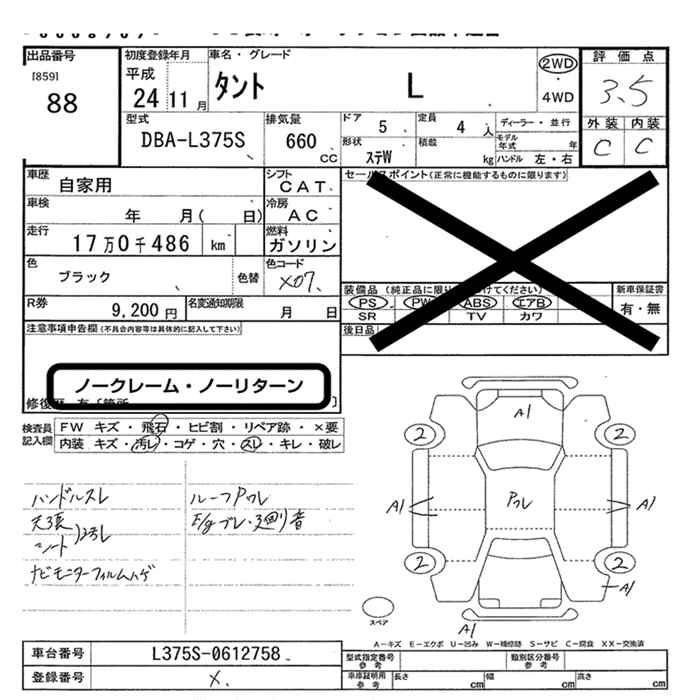 出品番号
[859]
88
初度登録年月
平成
24 11 月
車名・グレード
タント L
2WD
・
4WD
評価点
3.5
外装 内装
C C
型式
DBA-L375S
排気量
660
CC
ドア
5
定員
4 人
ディーラー・並行
モデル年式 年
形状
ステW
積載
kg
ハンドル 左・右
車歴
自家用
シフト
CAT
車検
年 月( 日)
冷房
AC
走行
17万0千486 km
燃料
ガソリン
色
ブラック
色替
色コード
X07
R券
9,200 円
名変通知期限
月 日
セールスポイント(正常に機能するものに限ります)
装備品
PS PW ABS エアB
SR TV カワ
後日品
新車保証書
有・無
注意事項申告欄(不具合内容等は具体的に記入して下さい)
ノークレーム・ノーリターン
検査員記入欄
FW キズ・飛石・ヒビ割・リペア跡・×要
内装 キズ・汚レ・コゲ・穴・スレ・キレ・破レ
ハンドルスレ
天張
シート 汚レ
ナビモニターフィルムハゲ
ルーフPワレ
E/gブレ・廻り音
A1
2 2
A1 Pワレ A1
2 2
A1
A1
スペア
A-キズ E-エクボ U-凹み W-補修跡 S-サビ C-腐食 XX-交換済
車台番号
L375S-0612758
登録番号
X.
型式指定番号
参考
類別区分番号
参考
車庫証明用
参考
長さ cm 幅 cm 高さ cm